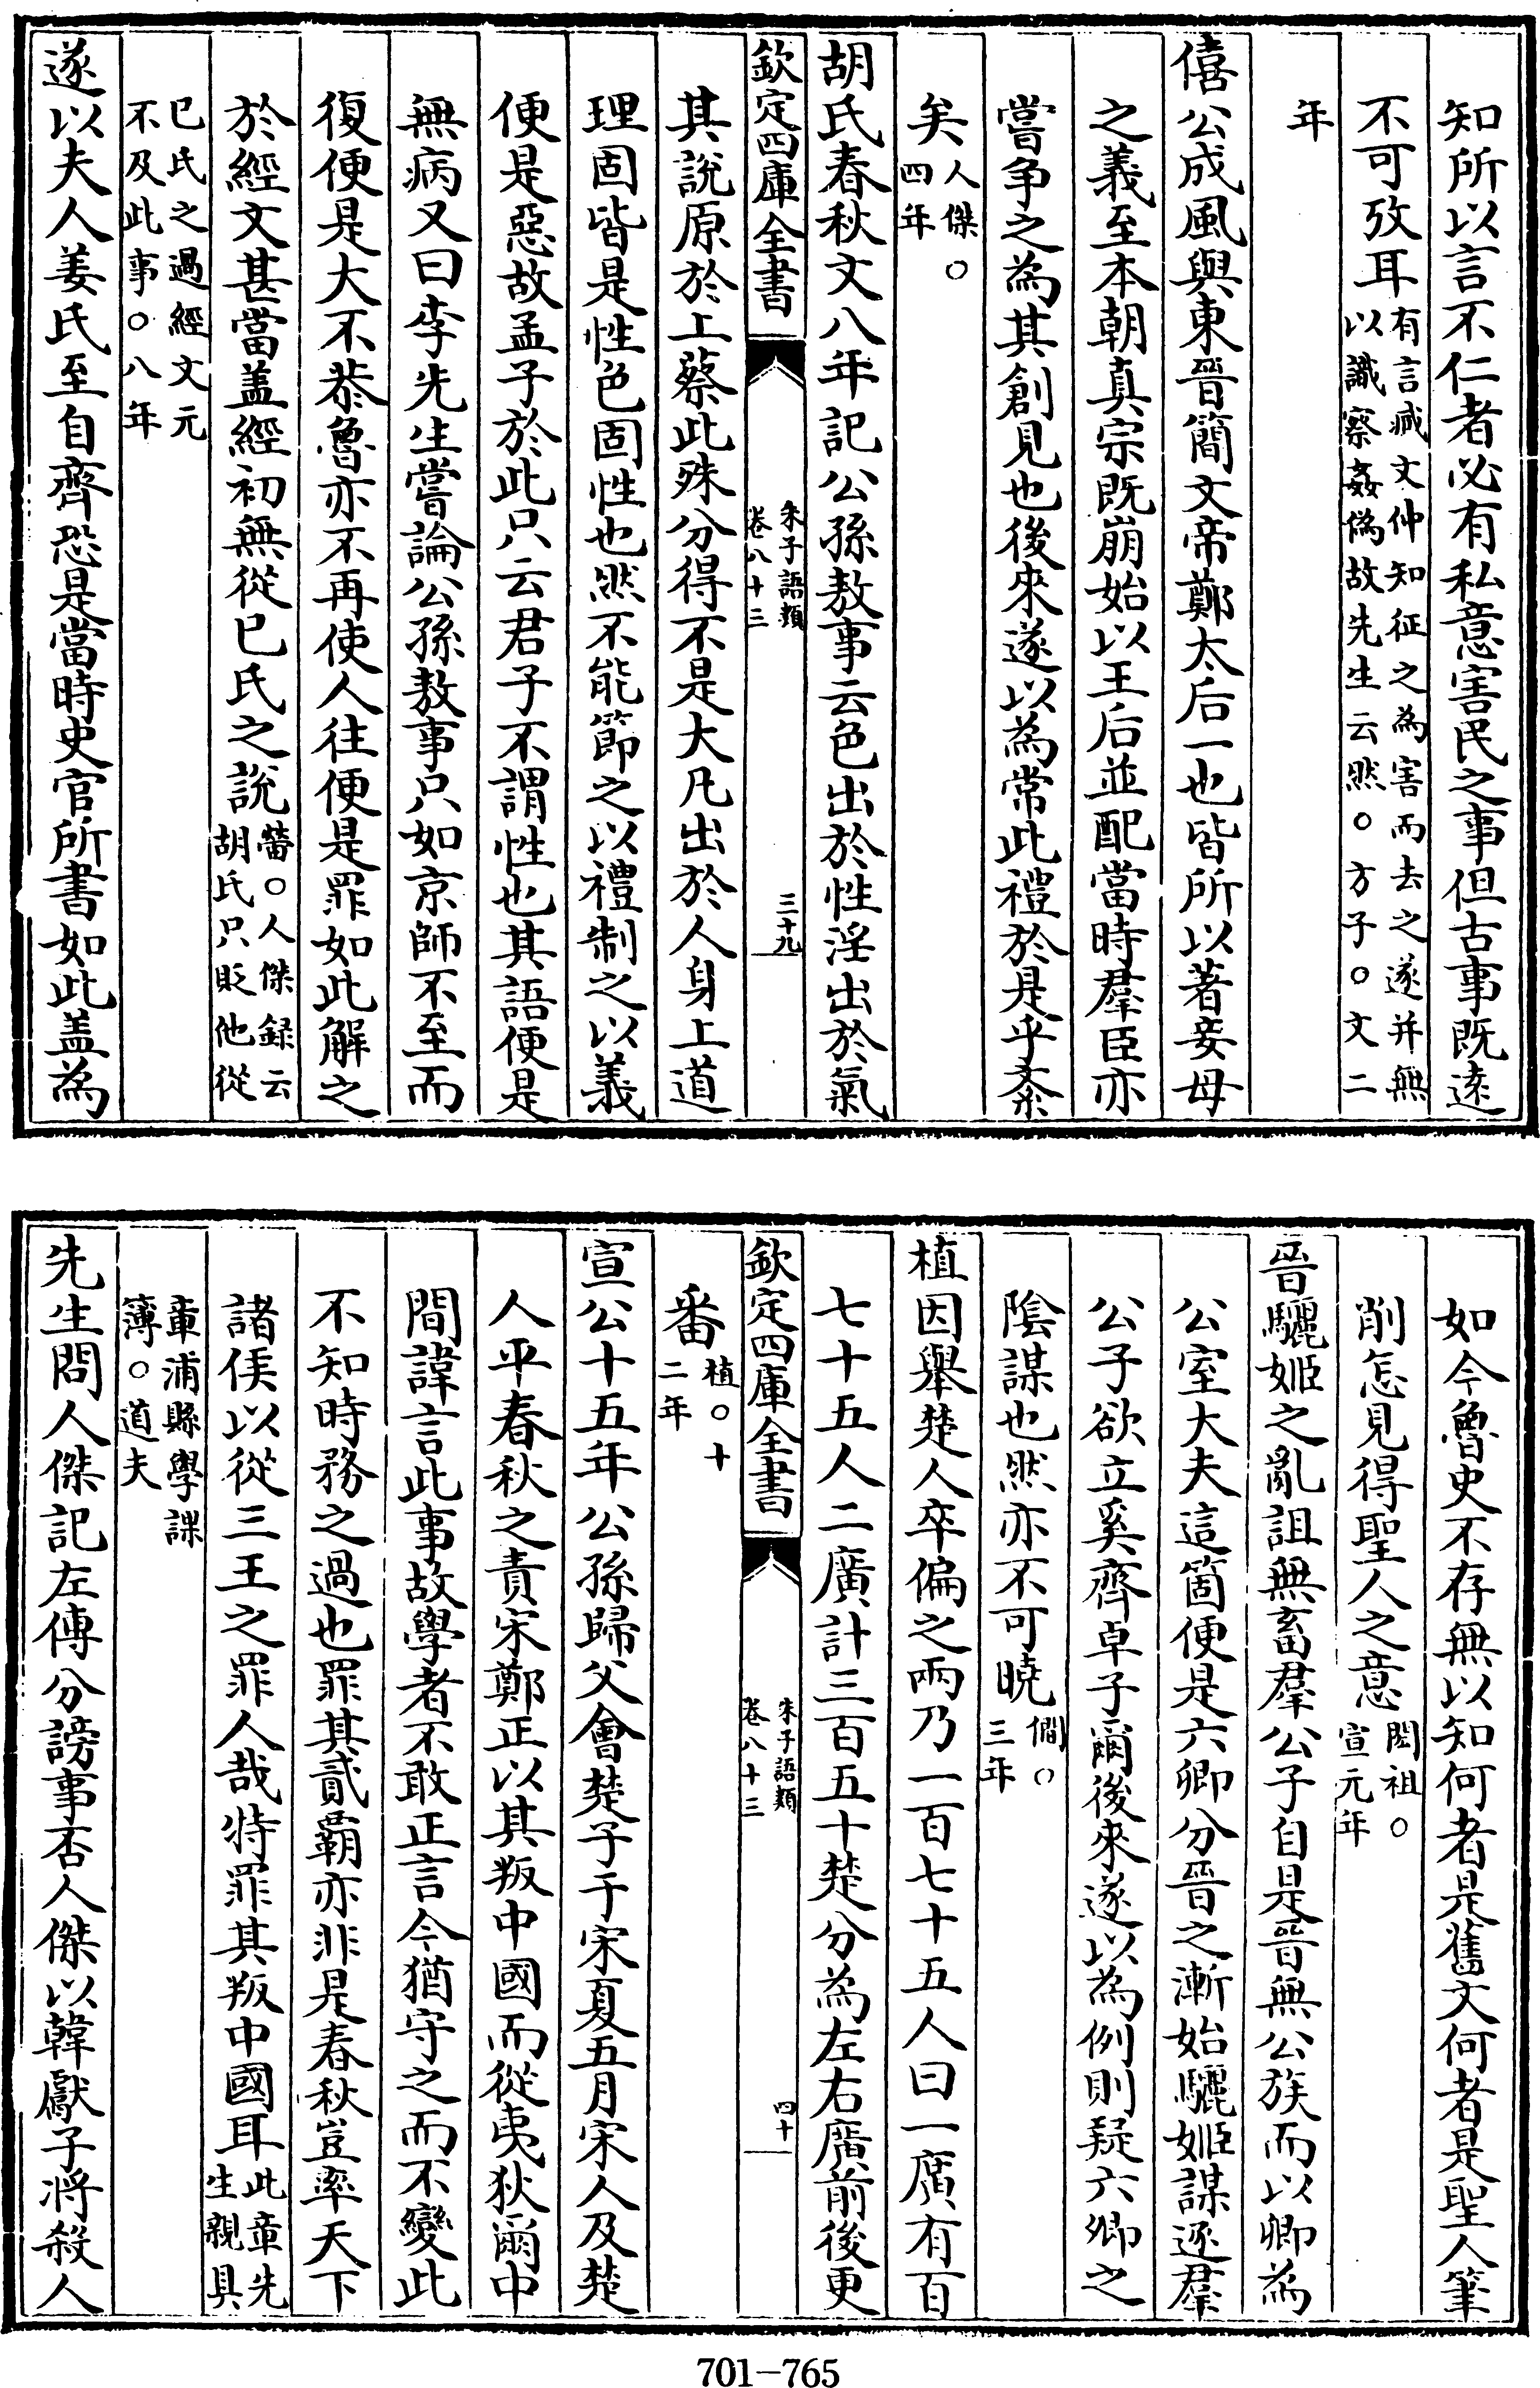 知所以言不仁者必有私意害民之事但古事既逺
不可攷耳有言臧文仲知征之為害而去之遂并無
以識察姦偽故先生云然○方子○文二
年
僖公成風與東晉簡文帝鄭太后一也皆所以著妾母
之義至本朝真宗既崩始以王后並配當時羣臣亦
嘗争之為其創見也後來遂以為常此禮於是乎紊
矣人傑○
四年
胡氏春秋文八年記公孫敖事云色出於性淫出於氣
欽定四庫全書
朱子語類
卷八十三
三十九
其說原於上蔡此殊分得不是大凡出於人身上道
理固皆是性色固性也然不能節之以禮制之以義
便是惡故孟子於此只云君子不謂性也其語便是
無病又曰李先生嘗論公孫敖事只如京師不至而
復便是大不恭魯亦不再使人往便是罪如此解之
於經文甚當盖經初無從巳氏之說㽦○人傑録云
胡氏只貶他從
巳氏之過經文元
不及此事○八年
遂以夫人姜氏至自齊恐是當時史官所書如此盖為
如今魯史不存無以知何者是舊文何者是聖人筆
削怎見得聖人之意閎祖○
宣元年
晉驪姬之亂詛無畜羣公子自是晉無公族而以卿為
公室大夫這箇便是六卿分晉之漸始驪姬謀逐羣
公子欲立奚齊卓子爾後來遂以為例則疑六卿之
陰謀也然亦不可曉僩○
三年
植因舉楚人卒偏之兩乃一百七十五人曰一廣有百
七十五人二廣計三百五十楚分為左右廣前後更
欽定四庫全書
朱子語類
卷八十三
四十
番植○十
二年
宣公十五年公孫歸父會楚子于宋夏五月宋人及楚
人平春秋之責宋鄭正以其叛中國而從夷狄爾中
間諱言此事故學者不敢正言今猶守之而不變此
不知時務之過也罪其貳霸亦非是春秋豈率天下
諸侯以從三王之罪人哉特罪其叛中國耳此章先
生親具
章浦縣學課
簿○道夫
先生問人傑記左傳分謗事否人傑以韓獻子將殺人
701-765